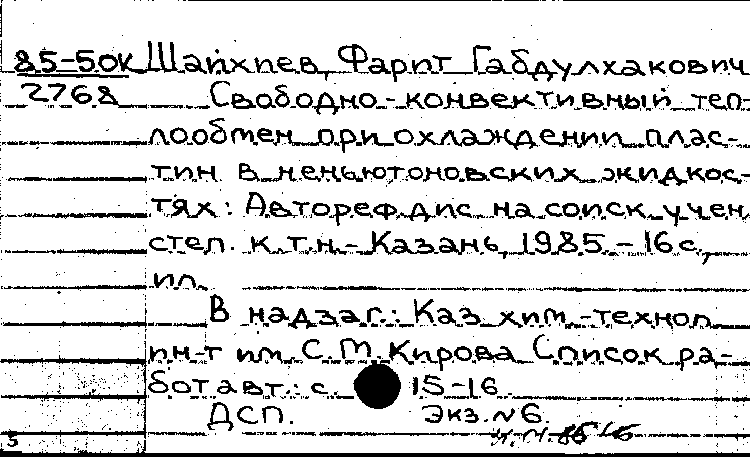 85-5.0К Шайхиев, Фарит Габдулхакович
2768 Свободно-конвективный теп-
лообмен при охлаждении плас-
тин в неньютоновских жидкос-
тях: Автореф. дис. на соиск. учен.
степ. к. т. н. - Казань, 1985. - 16 с.,
ил.
В надзаг.: Каз. хим.-технол.
ин-т им. С. М. Кирова. Список ра-
бот авт.: с. 15-16
ДСП. Экз. № 6.
5